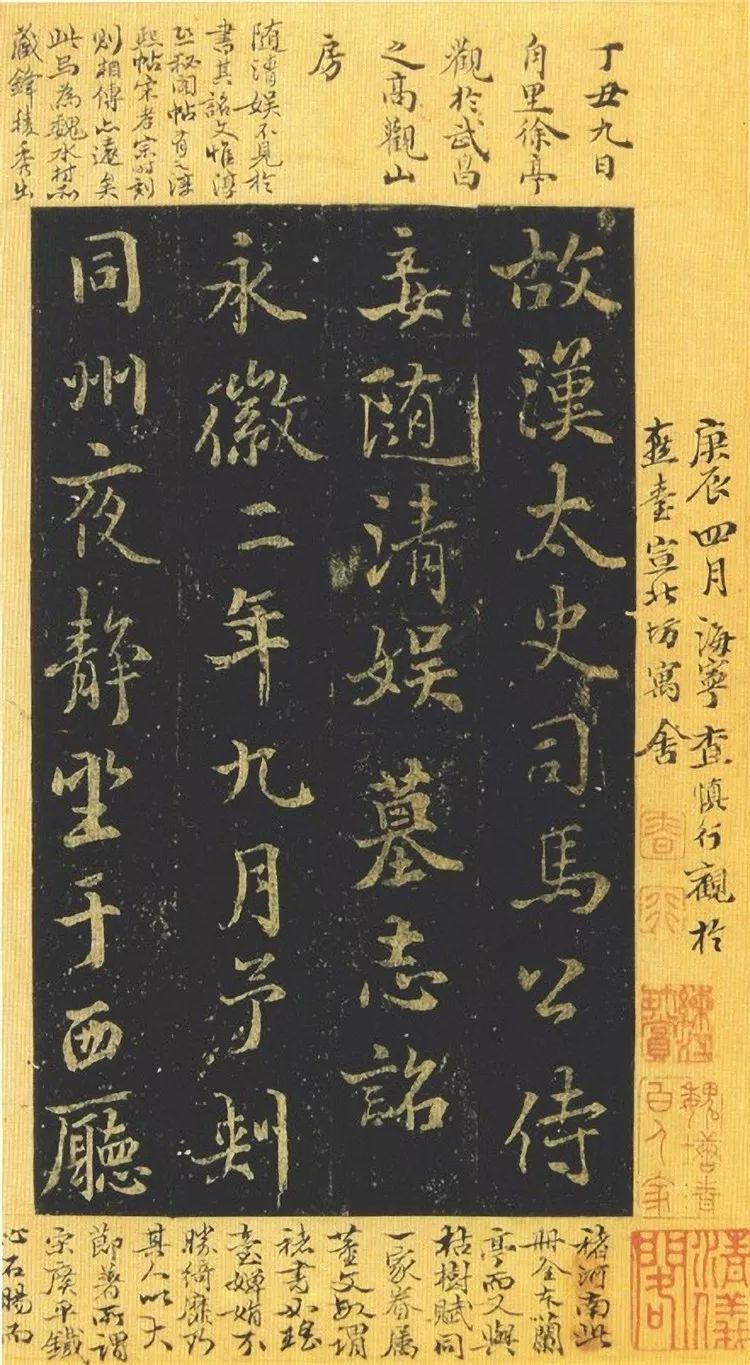 故漢太史司馬公侍
妾随清娱墓志銘
永徽二年九月予刺
同州夜静坐于西廳
丁丑九日
角里徐亭
觀於武昌
之高觀山
房
随清娱不見於
書其銘文惟淳
熙秘閣帖有之淳
熙帖宋孝宗時刻
則相傳亦遠矣
此焉為魏水村
藏鋒稜秀出
庚辰四月海寧查慎行觀於
燕臺宣北坊寓舍
褚河南此
冊全本蘭
亭而又與
枯樹賦同
一家眷屬
蓋文敏謂
褚書如瑤
臺嬋娟不
勝綺靡乃
其人以大
節著所謂
宋廣平鐵
心石腸而